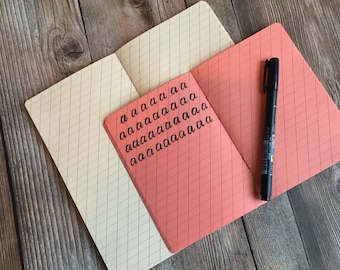 a a a a a a a
a a a a a a a a a
a a a a a a a a a a
a a a a a a a a a a